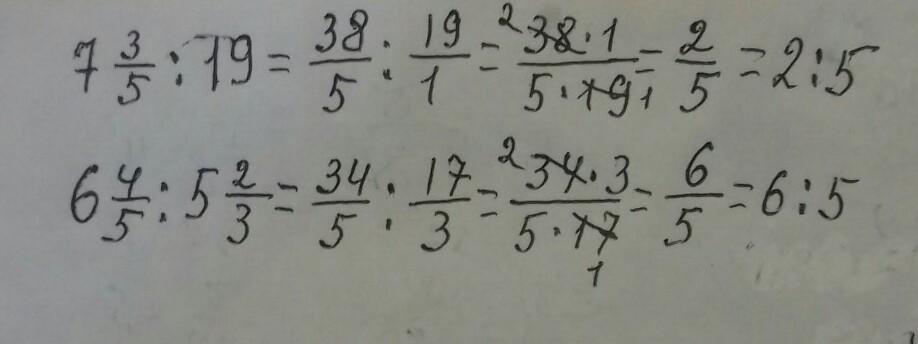 7 3/5 : 19 = 38/5 : 19/1 = 2 38·1 / 5·19 1 = 2/5 = 2:5
6 4/5 : 5 2/3 = 34/5 : 17/3 = 2 34·3 / 5·17 1 = 6/5 = 6:5